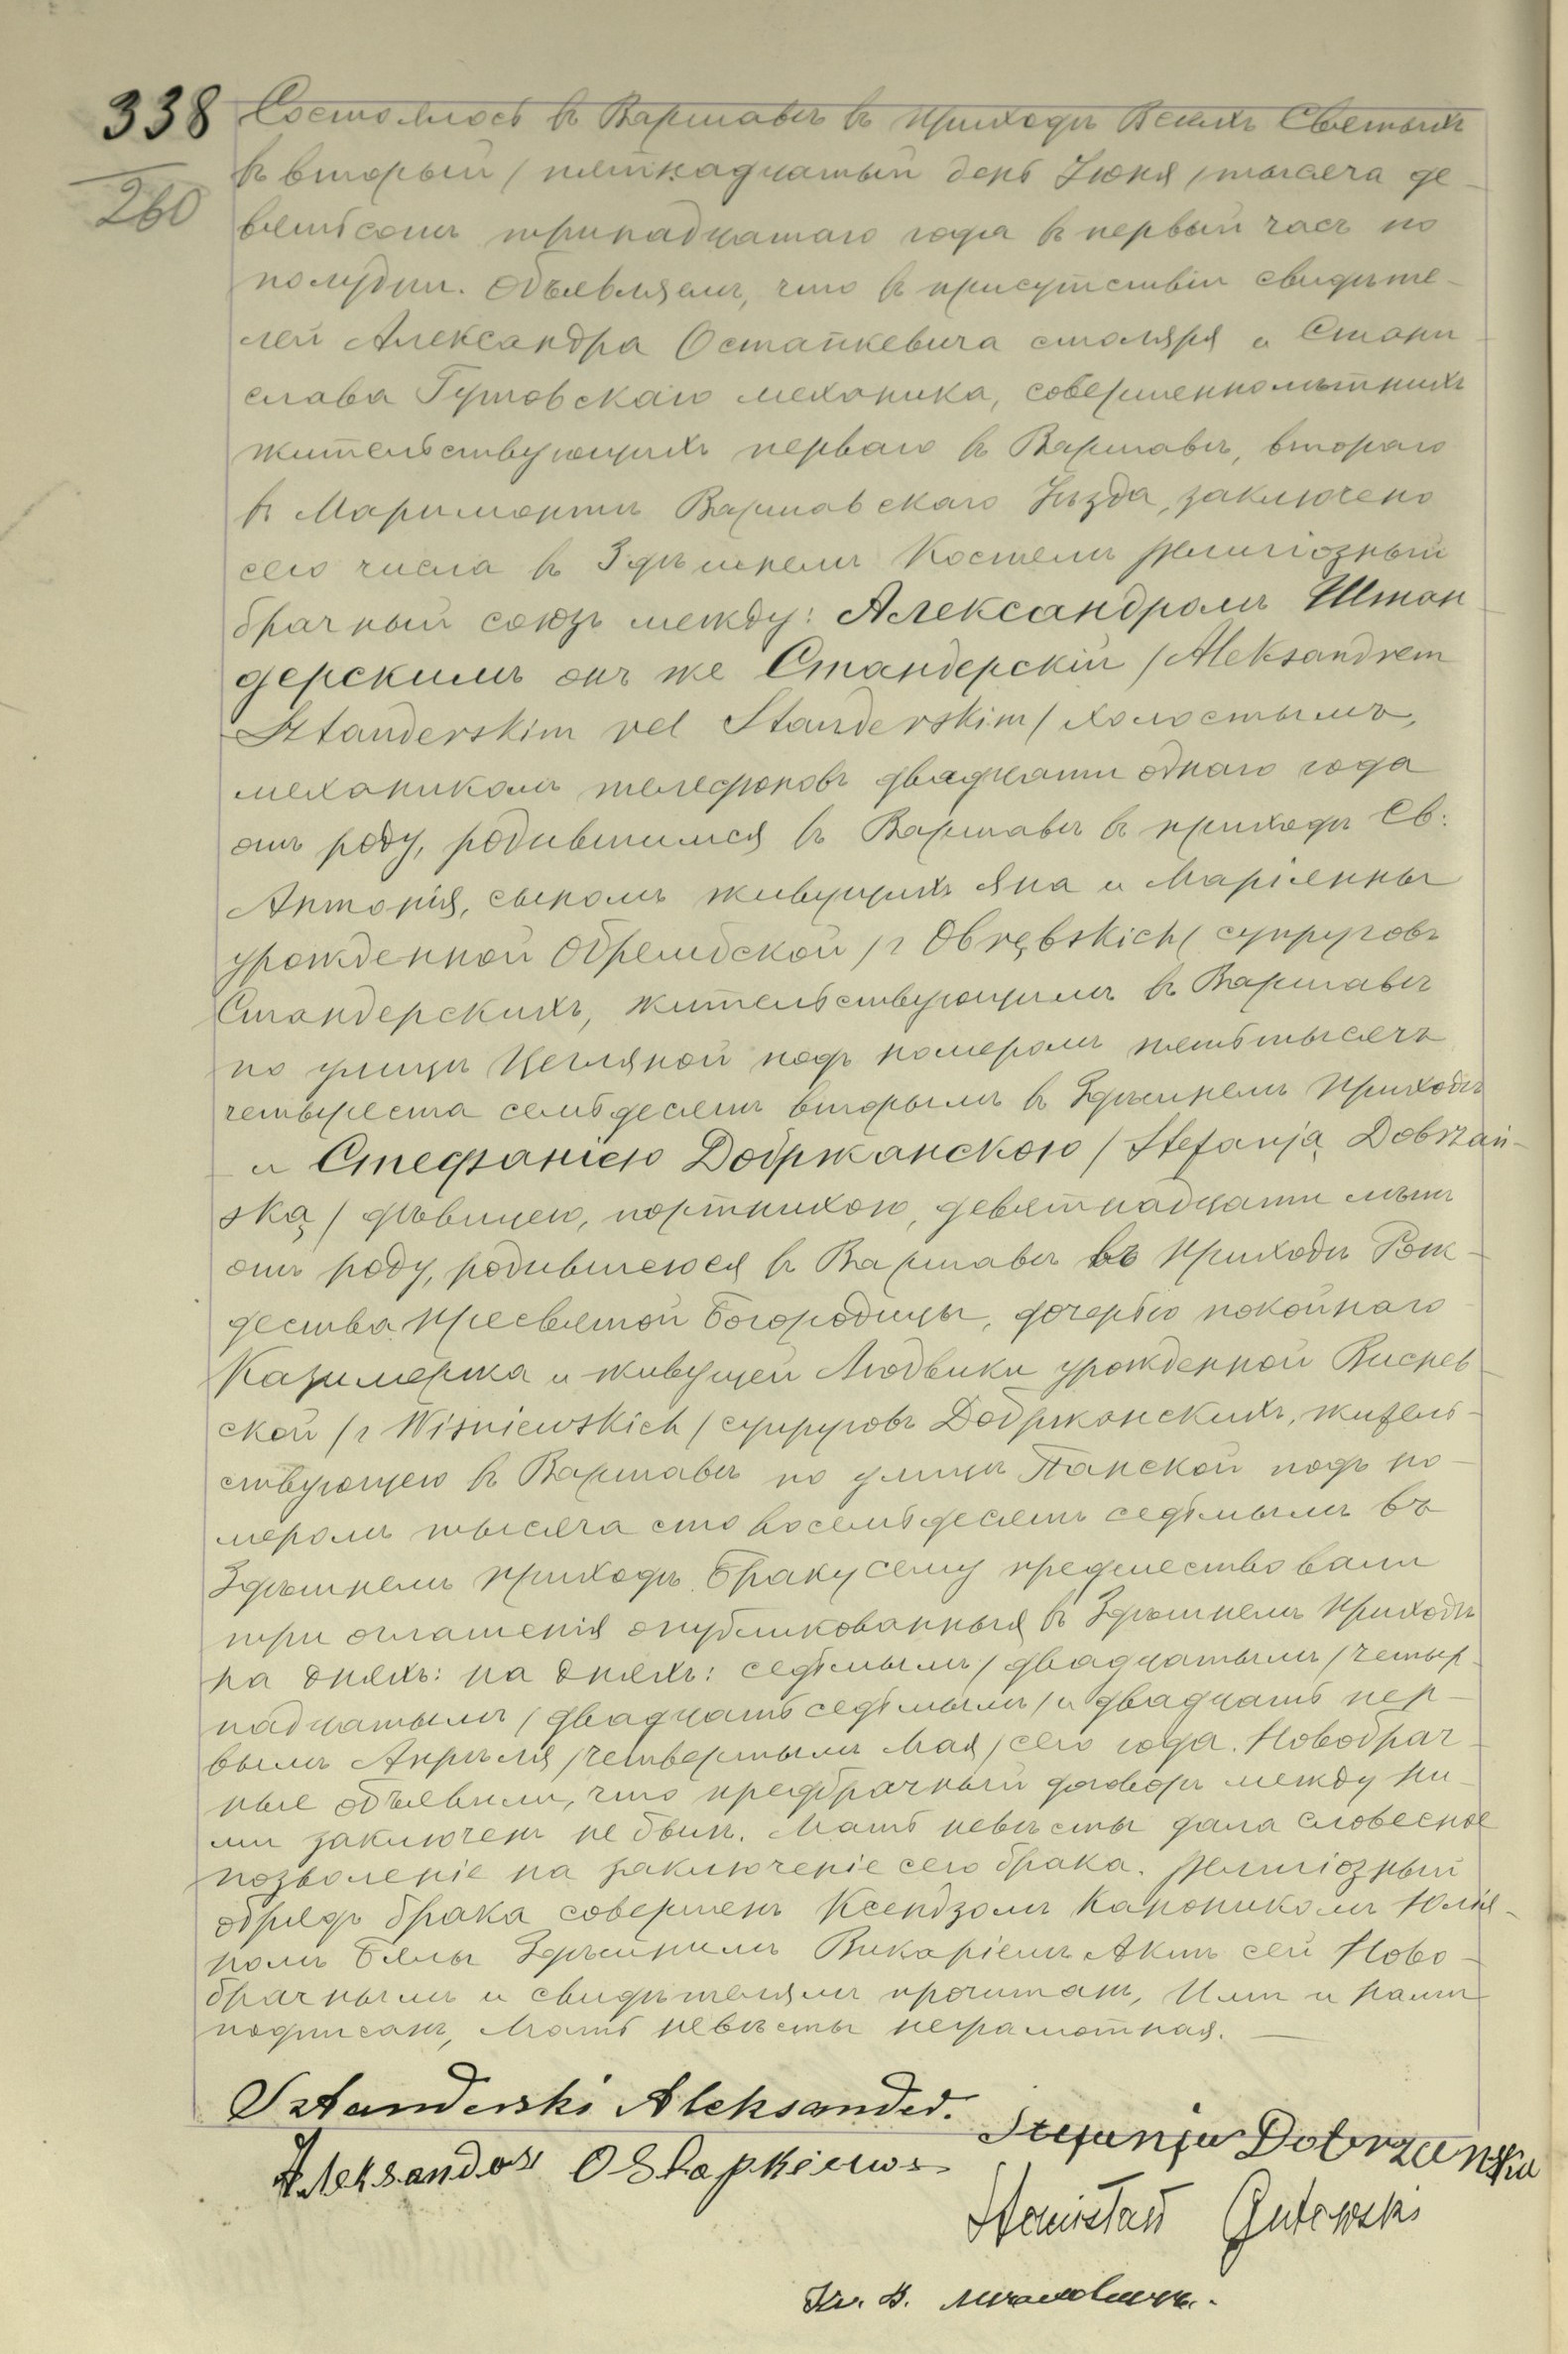 338 Состоялось въ Варшавѣ въ приходѣ Всѣхъ Святыхъ
260 въ второй /пятнадцатый день Іюня /тысяча де-
вятьсотъ тринадцатаго года въ первый часъ по
полудни. Объявляемъ, что въ присутствіи свидѣте-
лей Александра Остапкевича столяра и Стани-
слава Гутовскаго механика, совершеннолѣтнихъ
жительствующихъ перваго въ Варшавѣ, втораго
въ Маримонтѣ Варшавскаго Уѣзда, заключено
сего числа въ Здѣшнемъ Костелѣ религіозный
брачный союзъ между: Александромъ Штан-
дерскимъ онъ же Стандерскій /Aleksandrem
Sztanderskim vel Standerskim/ холостымъ,
механикомъ телефоновъ двадцати одного года
отъ роду, родившимся въ Варшавѣ въ приходѣ Св.
Антонія, сыномъ живущихъ Яна и Маріянны
урожденной Обрембской /z Obrębskich/ супруговъ
Стандерскихъ, жительствующимъ въ Варшавѣ
по улицѣ Цегляной подъ номеромъ пять тысячъ
четыреста семьдесятъ вторымъ въ Здѣшнемъ приходѣ
и Стефаніею Добржанскою /Stefanją Dobrzań-
ską/ дѣвицею, портнихою, девятнадцати лѣтъ
отъ роду, родившеюся въ Варшавѣ въ приходѣ Рож-
дества Пресвятой Богородицы, дочерью покойнаго
Казимержа и живущей Людвики урожденной Виснев-
ской /z Wiśniewskich/ супруговъ Добржанскихъ, житель-
ствующею въ Варшавѣ по улицѣ Панской подъ но-
меромъ тысяча сто восемьдесятъ седьмымъ въ
Здѣшнемъ приходѣ. Браку сему предшествовали
три оглашенія опубликованныя въ Здѣшнемъ приходѣ
на дняхъ: на дняхъ: седьмымъ /двадцатымъ/ четыр-
надцатымъ /двадцать седьмымъ/ и двадцать пер-
вымъ Апрѣля /четвертымъ Мая/ сего года. Новобрач-
ные объявили, что предбрачный договоръ между ни-
ми заключенъ не былъ. Мать невѣсты дала словесное
позволеніе на заключеніе сего брака. Религіозный
обрядъ брака совершенъ Ксендзомъ Каноникомъ Юлія-
номъ Бялы Здѣшнимъ Викаріемъ. Актъ сей Ново-
брачнымъ и свидѣтелямъ прочитанъ, Ими и нами
подписанъ, Мать невѣсты неграмотная.
Sztanderski Aleksander. Stefanja Dobrzańska
Aleksander Ostapkiewicz
Stanisław Gutowski
Кс. В.